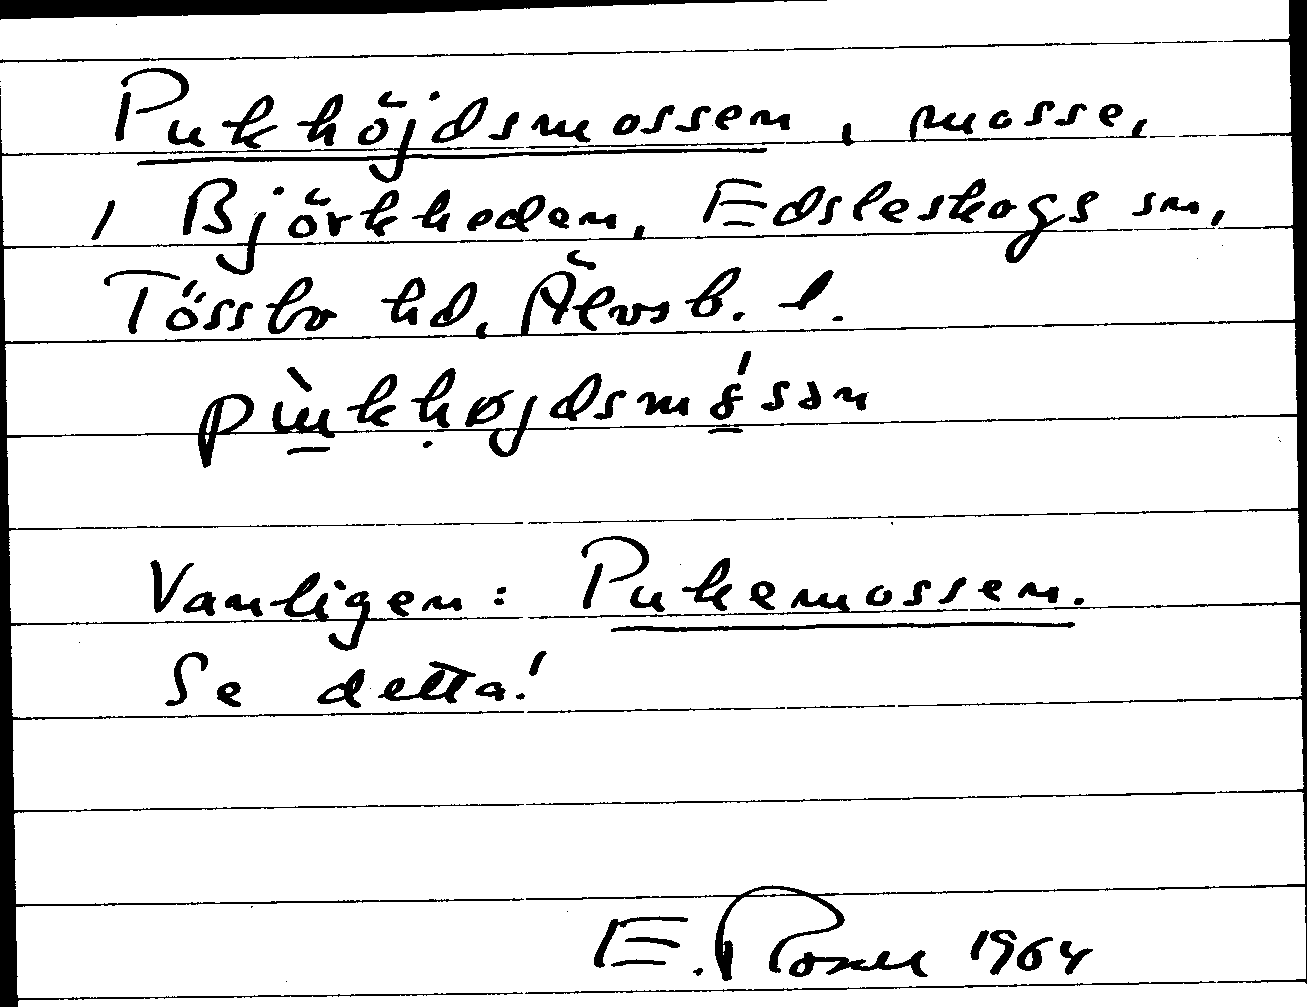 Pukhöjdsmossen, mosse,
i Björkheden, Edsleskogs sn,
Tössbo hd, Älvsb. l.
Vanligen: Pukemossen.
Se detta!
E. 1964